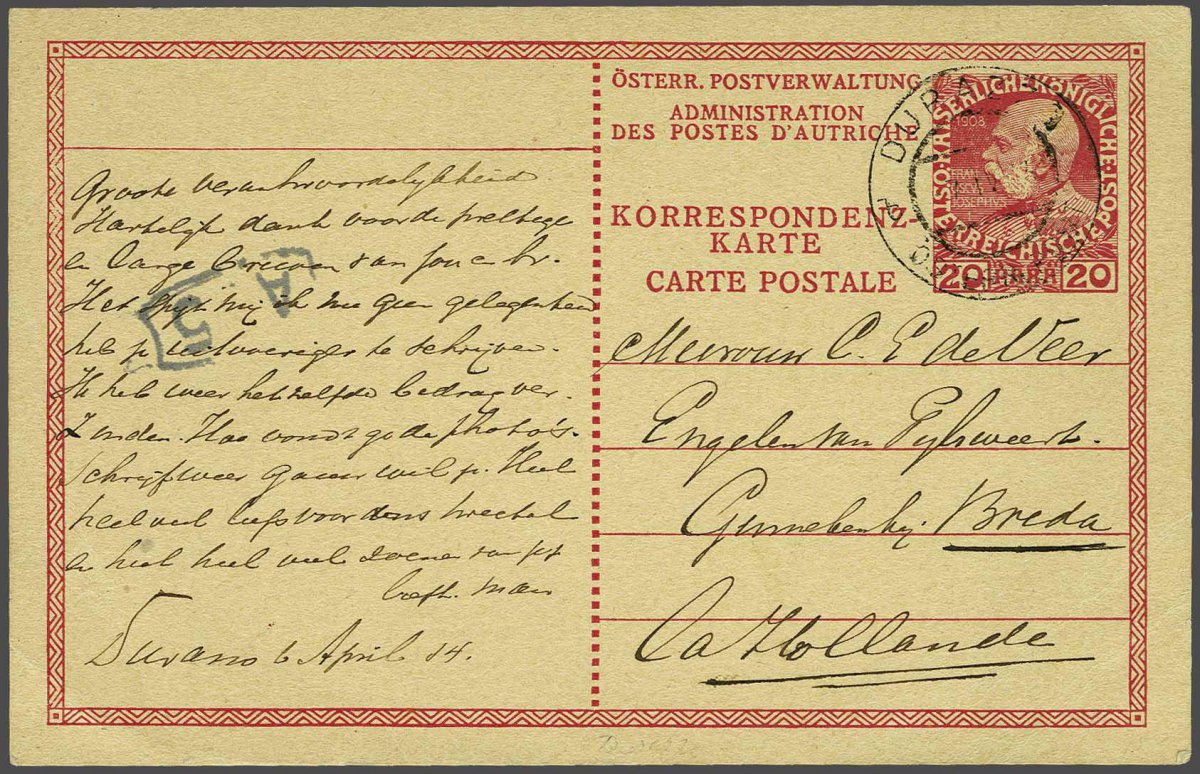 Groote verantwoordelijkheid.
Hartelijk dank voor de prettige
en lange brieven van jou en br.
Het spijt mij ik nu geen gelegenheid
heb je uitvoeriger te schrijven.
Ik heb weer hetzelfde bedrag ver-
zonden. Hoe vondt ge de photo's.
Schrijf weer gauw wil je. Heel
heel veel liefs voor tweetal
en heel heel veel zoenen van je
liefh. man
Durazzo 6 April 14.
A
5
ÖSTERR. POSTVERWALTUNG
ADMINISTRATION
DES POSTES D'AUTRICHE
KORRESPONDENZ-
KARTE
CARTE POSTALE
KAISERLICHE KÖNIGLICHE ÖSTERREICHISCHE POST
1908
FRAN
IOSEPHVS
20 PARA 20
DURAZZO
Mevrouw C. E de Veer
Engelen van Pijlsweert.
Ginneken bij Breda
La Hollande